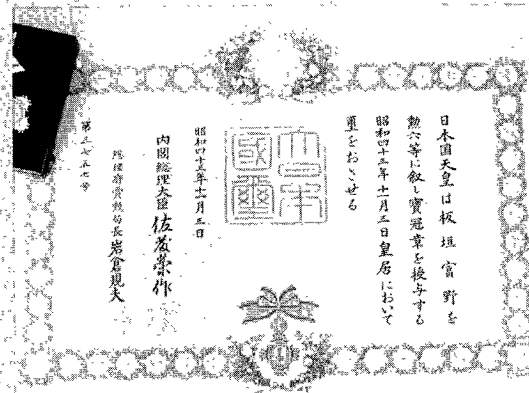 日本国天皇は板垣富野を
勲六等に叙し寶冠章を授与する
昭和四十三年十一月三日皇居において
璽をおさせる
大日本
國璽
昭和四十三年十一月三日
内閣総理大臣 佐藤榮作
総理府賞勲局長 岩倉規夫